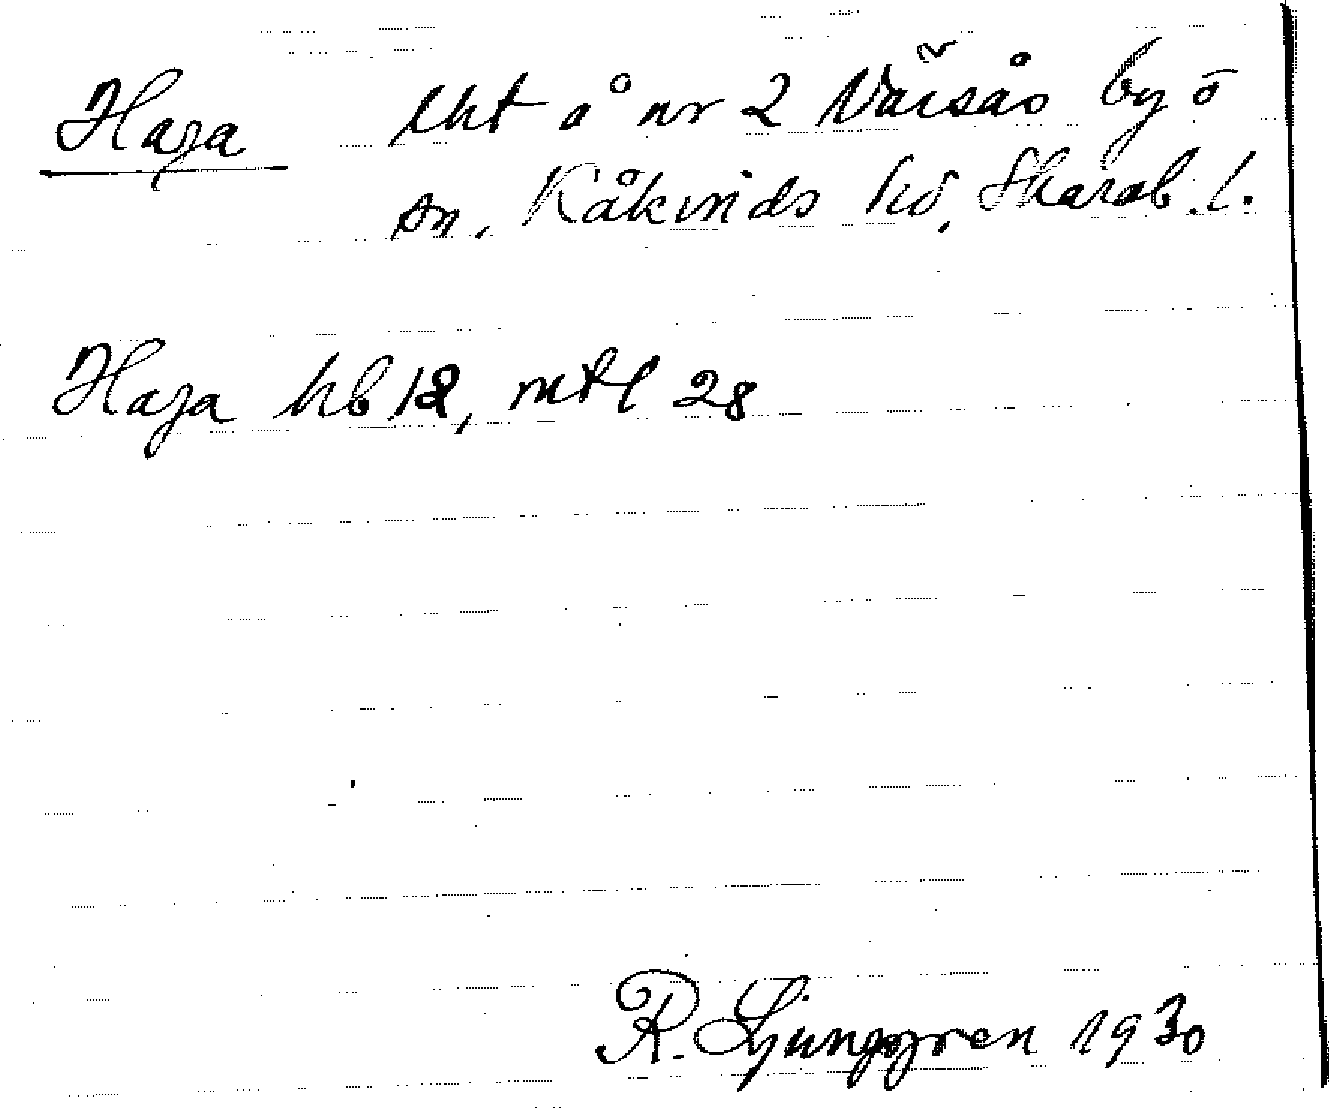 Haga lht å nr 2 Våsås by i
sn, Kåkinds hd, Skarab. l.
Haga hb 12, mtl 28
R. Ljunggren 1930